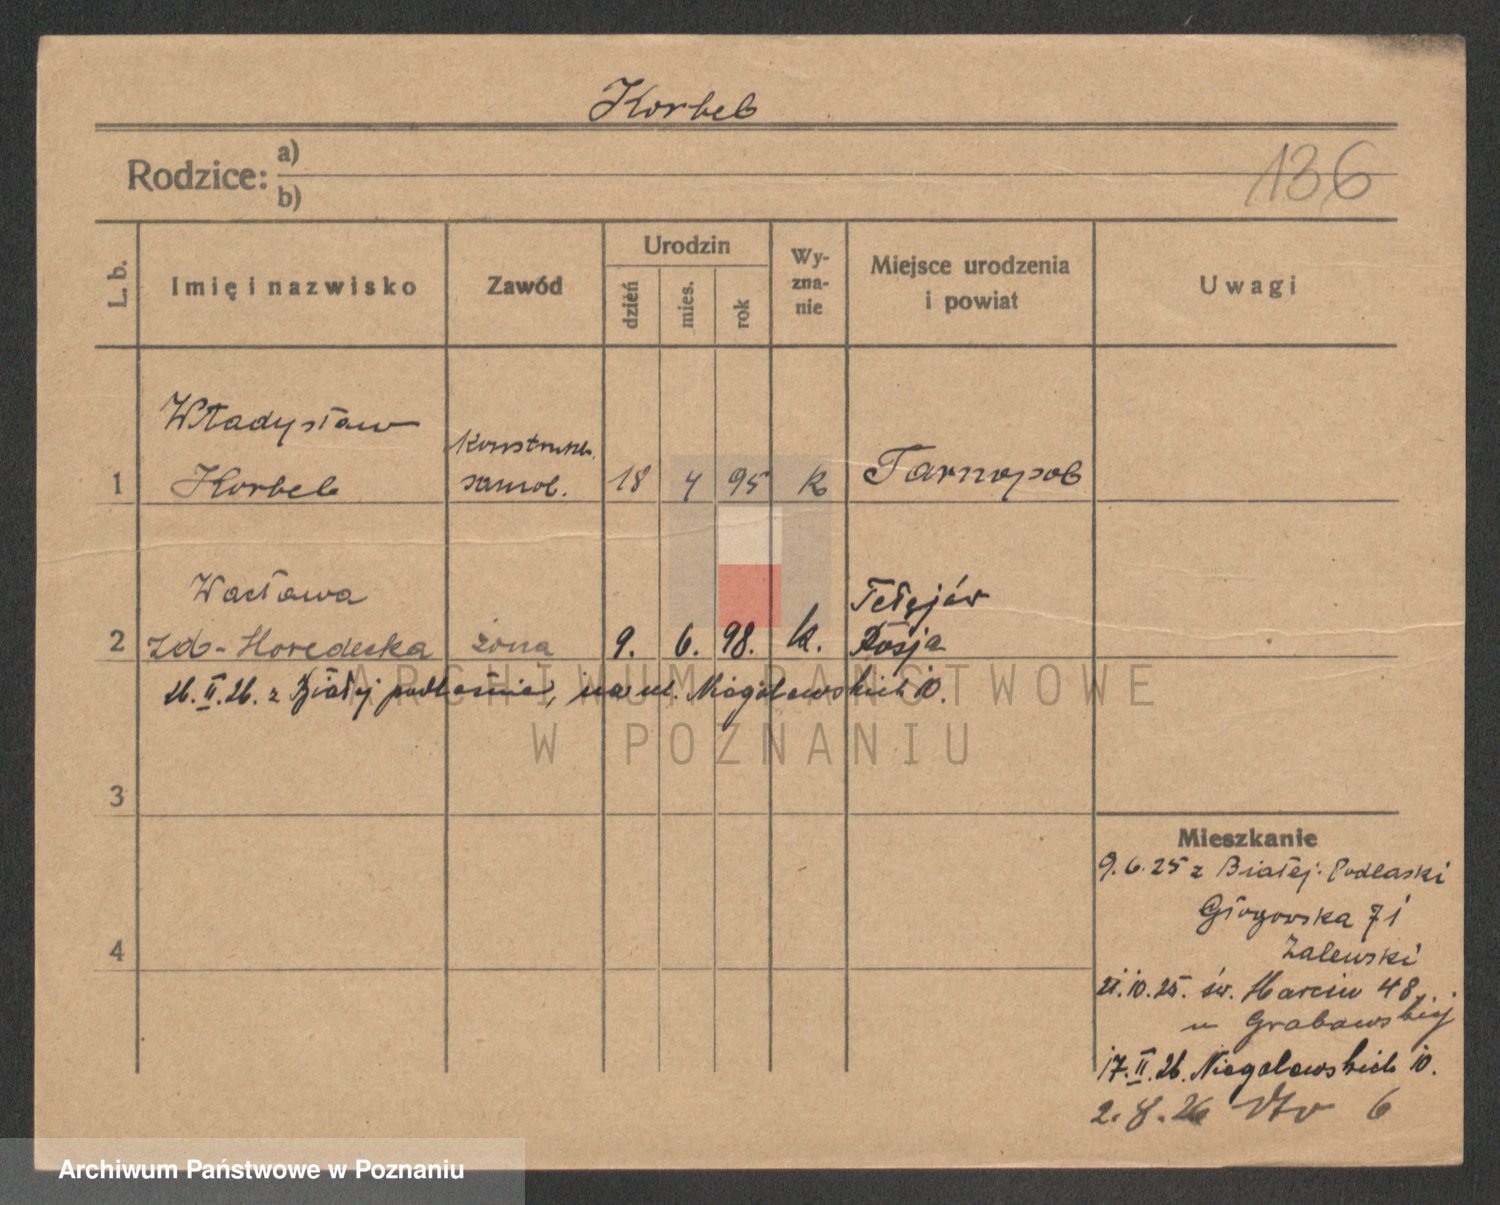 Korbel
Rodzice: a)
b)
136
L. b.
Imię i nazwisko
Zawód
Urodzin
dzień
mies.
rok
Wy-
zna-
nie
Miejsce urodzenia
i powiat
Uwagi
Władysław
Konstrukt.
1 Korbel samol. 18 4 95 k Tarnopol
Wacława
2 zd-Horedecka żona 9. 6. 98. k. Rosja
26.II.26. z Białej podlaśnie, na ul. Niegolewskich 10.
ARCHIWUM PAŃSTWOWE
W POZNANIU
3
4
Mieszkanie
9.6.25 z Białej-Podlaski
Głogowska 71
Zalewski
21.10.25. św. Marcin 48,
u Grabowskiej
17.II.26. Niegolewskich 10.
2.8.26 6
Archiwum Państwowe w Poznaniu